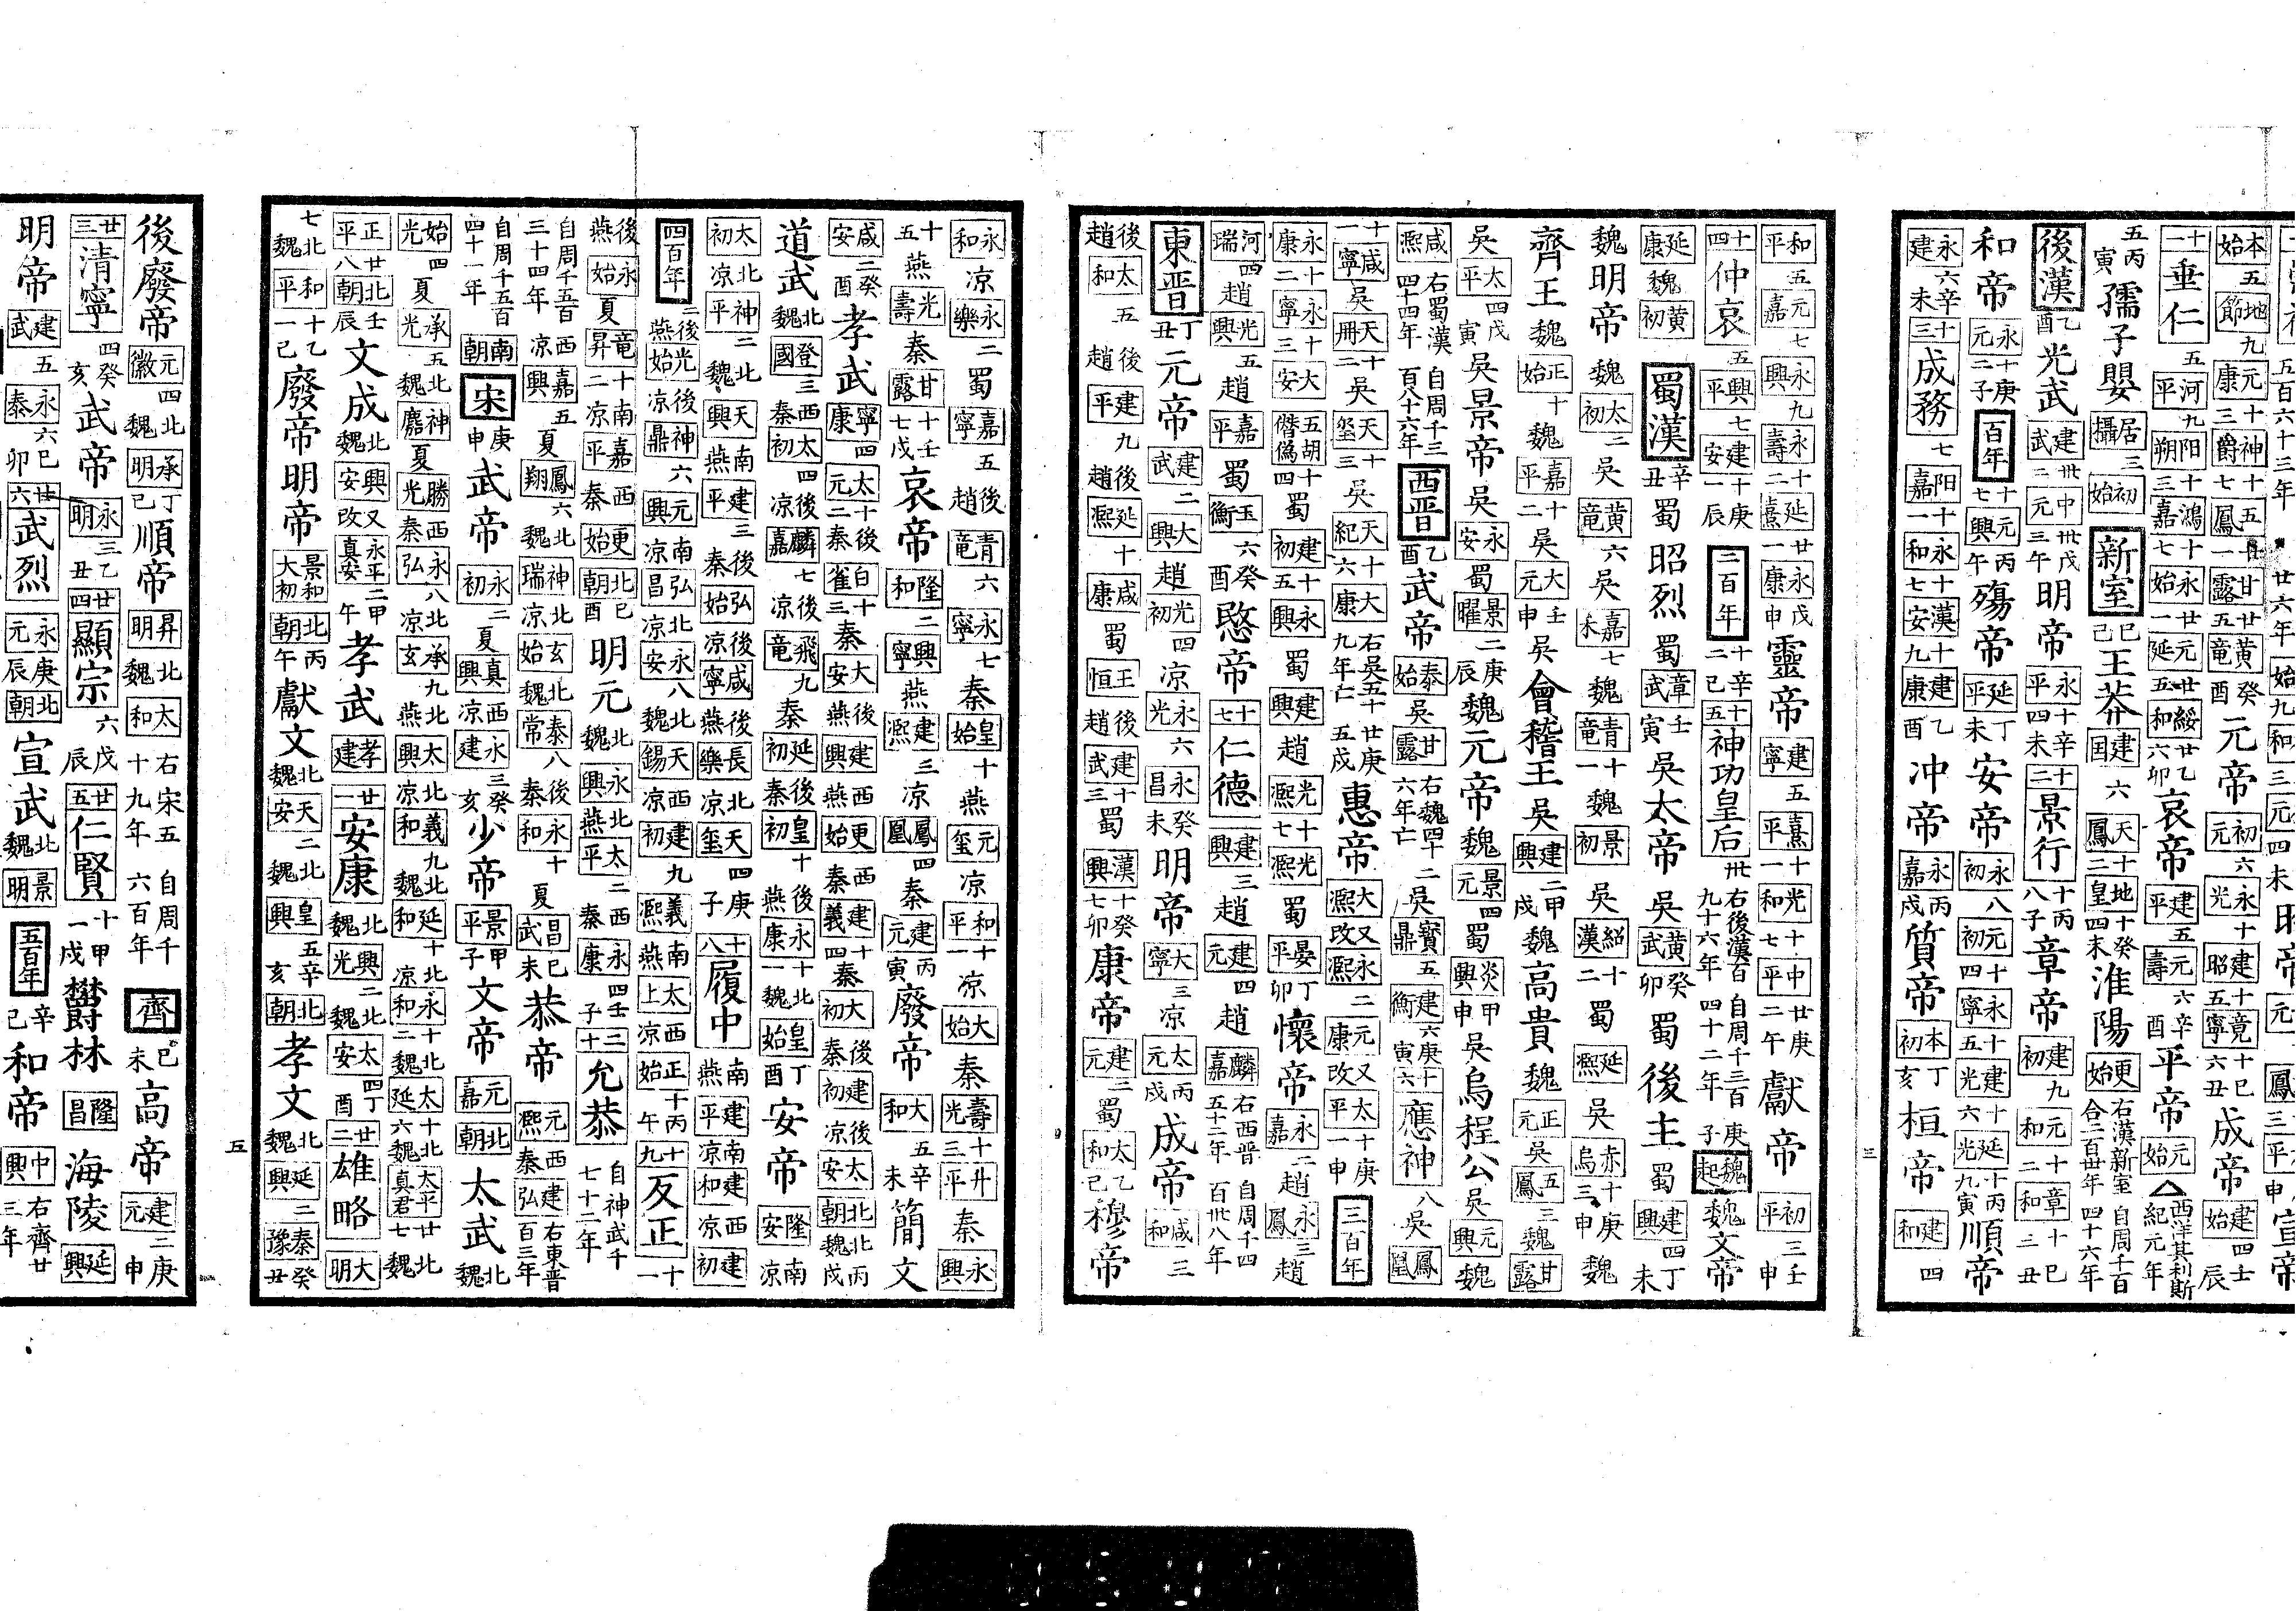 本始五地節九元康三神爵十七五鳳廿一甘露廿五黄竜癸酉元帝初元六永光十建昭十五竟寧十六己丑成帝建始四壬辰
十一垂仁五河平九阳朔十三鴻嘉十七永始廿一元延廿五綏和廿六乙卯哀帝建平五元壽六辛酉平帝元始西洋其利斯紀元年
五丙寅孺子嬰居攝三初始新室己巳王莽建国六天鳳十二地皇十四癸未淮陽更始右漢新室合二百卅年自周千百四十六年
後漢乙酉光武建武卅二中元卅三戊午明帝永平十四辛未十二景行十八丙子章帝建初九元和十二章和十三己丑
和帝永元十二庚子百年元興十七丙午殤帝延平丁未安帝永初八元初十四永寧十五建光十六延光十九丙寅順帝
永建六辛未十三成務七阳嘉十一永和十七漢安十九建康乙酉冲帝永嘉丙戌質帝本初丁亥桓帝建和四
和平五元嘉七永興九永壽十二延熹廿一永康戊申靈帝建寧五熹平十一光和十七中平廿二庚午獻帝初平三壬申
十四仲哀五興平七建安十一庚辰二百年十二辛巳十五神功皇后卅右後漢百九十六年自周千三百四十二年庚子魏起魏文帝
延康魏黄初蜀漢辛丑蜀昭烈蜀章武壬寅吳太帝吳黄武癸卯蜀後主蜀建興四丁未
魏明帝魏太初二吳黄竜六吳嘉禾七魏青竜十一魏景初吳紹漢十二蜀延熙吳赤烏十三庚申魏
齊王魏正始十魏嘉平十二吳大元壬申吳會稽王吳建興二甲戌魏高貴魏正元吳五鳳三魏甘露
吳太平四戊寅吳景帝吳永安蜀景曜二庚辰魏元帝魏景元四蜀炎興甲申吳烏程公吳元興魏
咸熙右蜀漢四十四年自周千三百八十六年西晋乙酉武帝泰始吳甘露右魏四十六年亡二吳寳鼎五建衡六庚寅十六應神八吳鳳凰
十一咸寧吳天冊十二吳天璽十三吳天紀十六大康右吳五十九年亡廿五庚戌惠帝大熙又改永熙二元康又改太平十一庚申三百年
永康十二永寧十三大安五胡僭僞十四蜀建初十五永興蜀建興趙光熙十七光熙蜀晏平丁卯懷帝永嘉二趙永鳳三趙
河瑞四趙光興五趙嘉平蜀玉衡六癸酉愍帝十七仁德建興三趙建元四趙麟嘉右西晋五十二年自周千四百卅八年
東晋丁丑元帝建武二大興趙光初四凉永光六永昌癸未明帝大寧三凉太元丙戌成帝咸和三
後趙太和五後趙建平九後趙延熙十咸康蜀王恒後趙建武十三蜀漢興十七癸卯康帝建元二蜀太和乙己穆帝
永和凉永樂二蜀嘉寧五後趙青竜六永寧七秦皇始十燕元玺凉和平十一凉大始秦壽光十三升平秦永興
十五燕光壽秦甘露十七壬戌哀帝隆和二興寧燕建熙三凉鳳凰四秦建元丙寅廢帝大和五辛未簡文
咸安二癸酉孝武寧康四太元十二後秦白雀十三秦大安後燕建興西燕更始西秦建義十四秦大初後秦建初後凉太安北朝北魏丙戌
道武北魏登國三西秦太初四後凉麟嘉七後凉飛竜九秦延初後秦皇初十後燕永康十一北魏皇始丁酉安帝隆安南凉
太初北凉神平二北魏天興南燕建平三後秦弘始後凉咸寧後燕長樂北凉天玺四庚子十八履中南燕建平南凉建和西凉建初
四百年二後燕光始後凉神鼎六元興南凉弘昌北凉永安八北魏天錫西凉建初九義熙南燕太上西凉正始十丙午十九反正十一
後燕永始夏竜昇十二南凉嘉平西秦更始北朝己酉明元北魏永興北燕太平二西秦永康四壬子二十允恭自神武千七十二年
自周千五百三十四年西凉嘉興五夏鳳翔六北魏神瑞北凉玄始北魏泰常八後秦永和十夏昌武己未恭帝元熙西秦建弘右東晋百三年
自周千五百四十一年南朝宋庚申武帝永初二夏真興西凉永建三癸亥少帝景平甲子文帝元嘉北朝太武北魏
始光四夏承光五北魏神䴥夏勝光西秦永弘八北凉承玄九北燕太興北凉義和九北魏延和十北凉永和十二北魏太延十六北魏太平真君廿七北魏
正平廿八北朝壬辰文成北魏興安又改永平真安二甲午孝武孝建廿一安康北魏興光二北魏太安四丁酉廿二雄略大明
七北魏和平十一乙己廢帝明帝景和大初北朝丙午獻文北魏天安二北魏皇興五辛亥北朝孝文北魏延興二泰豫癸丑
後廢帝元徽四北魏承明丁己順帝昇明北魏太和右宋五十九年自周千六百年齊己未高帝建元二庚申
廿三清寧四癸亥武帝永明三乙丑廿四顯宗六戊辰廿五仁賢十一甲戌欝林隆昌海陵延興
明帝建武五永泰六己卯廿六武烈永元庚辰北朝宣武北魏景明五百年辛己和帝中興右齊廿三年
三
四
五